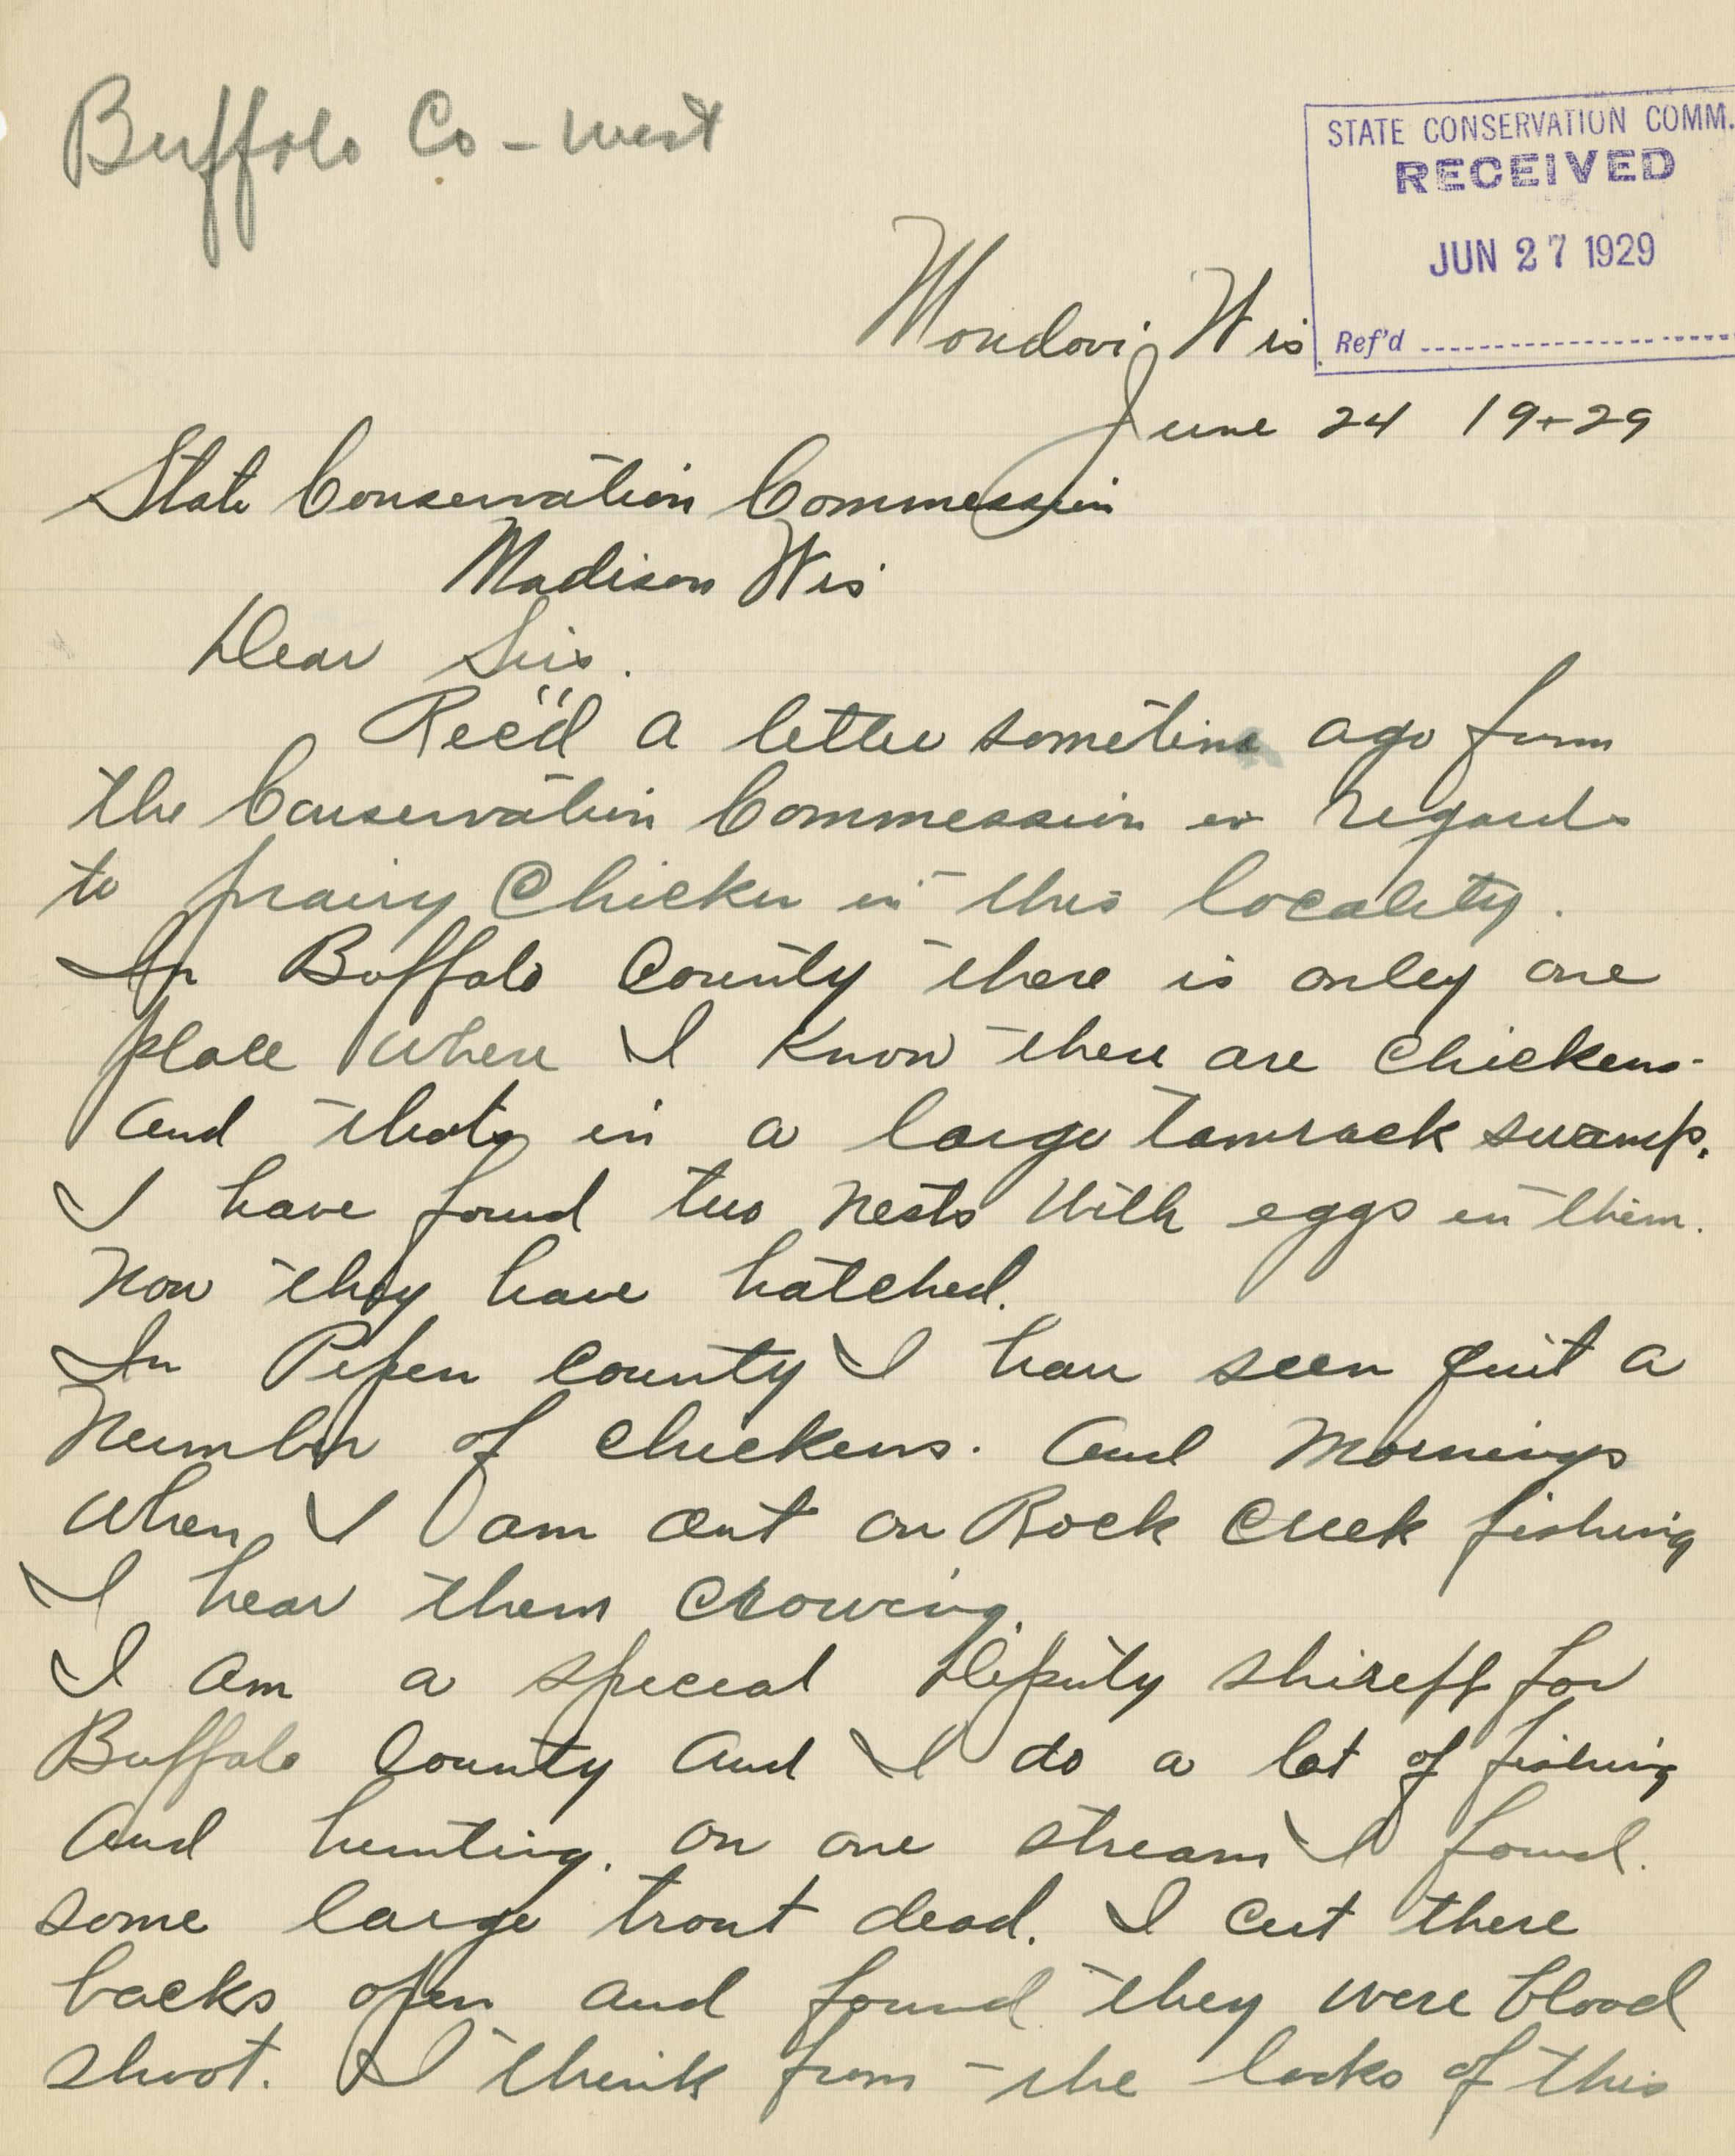 Buffalo Co - west
STATE CONSERVATION COMM.
RECEIVED
JUN 27 1929
Ref'd
Mondovi, Wis
June 24 19-29
State Conservation Commession
Madison Wis
Dear Sirs.
Rec'd a letter sometime ago from
the Conservation Commession in regards
to prairy Chicken in this locality.
In Buffalo County there is onley one
place where I know there are chickens-
and thats in a large tamrack swamp.
I have found two nests with eggs in them.
Now they have hatched.
In Pepen County I have seen quit a
Number of chickens. And Mornings
when I am out on Rock Creek fishing
I hear them crowing.
I am a special Deputy shireff for
Buffalo County and I do a lot of fishing
and hunting. on one stream I found.
some large trout dead. I cut there
backs open and found they were blood
shoot. I think from the looks of this